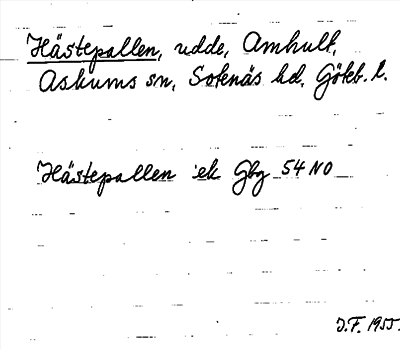 Hästepallen, udde, Amhult,
Askums sn, Sotenäs hd, Göteb. l.
Hästepallen ek Gbg 54 NO
J.F. 1955.